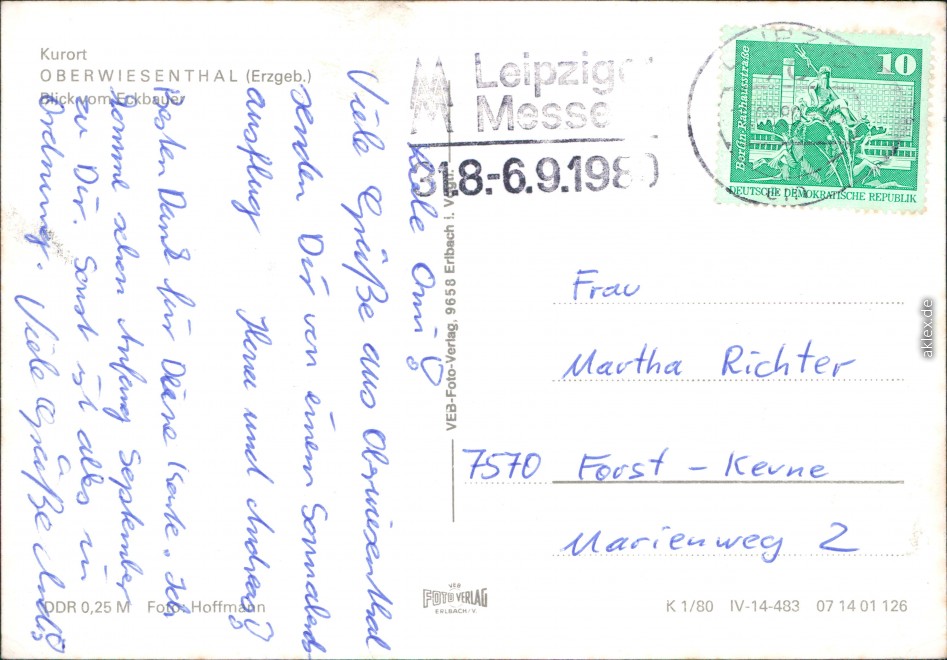 Kurort
OBERWIESENTHAL (Erzgeb.)
Blick vom Eckbauer
Leipziger
Messe
31.8.-6.9.1980
10
Berlin-Rathausstraße
DEUTSCHE DEMOKRATISCHE REPUBLIK
Liebe Omi!
Viele Grüße aus Oberwiesenthal
senden Dir von einem Sonnabend-
ausflug Hans und Andreas!
Besten Dank für Deine Karte. Ich
komme schon Anfang September
zu Dir. Sonst ist alles in
Ordnung. Viele Grüße
Frau
Martha Richter
7570 Forst - Keune
Marienweg 2
VEB-Foto-Verlag, 9658 Erlbach i. Vogtl.
DDR 0,25 M Foto: Hoffmann
VEB
FOTO VERLAG
ERLBACH/V.
K 1/80 IV-14-483 07 14 01 126
aklex.de